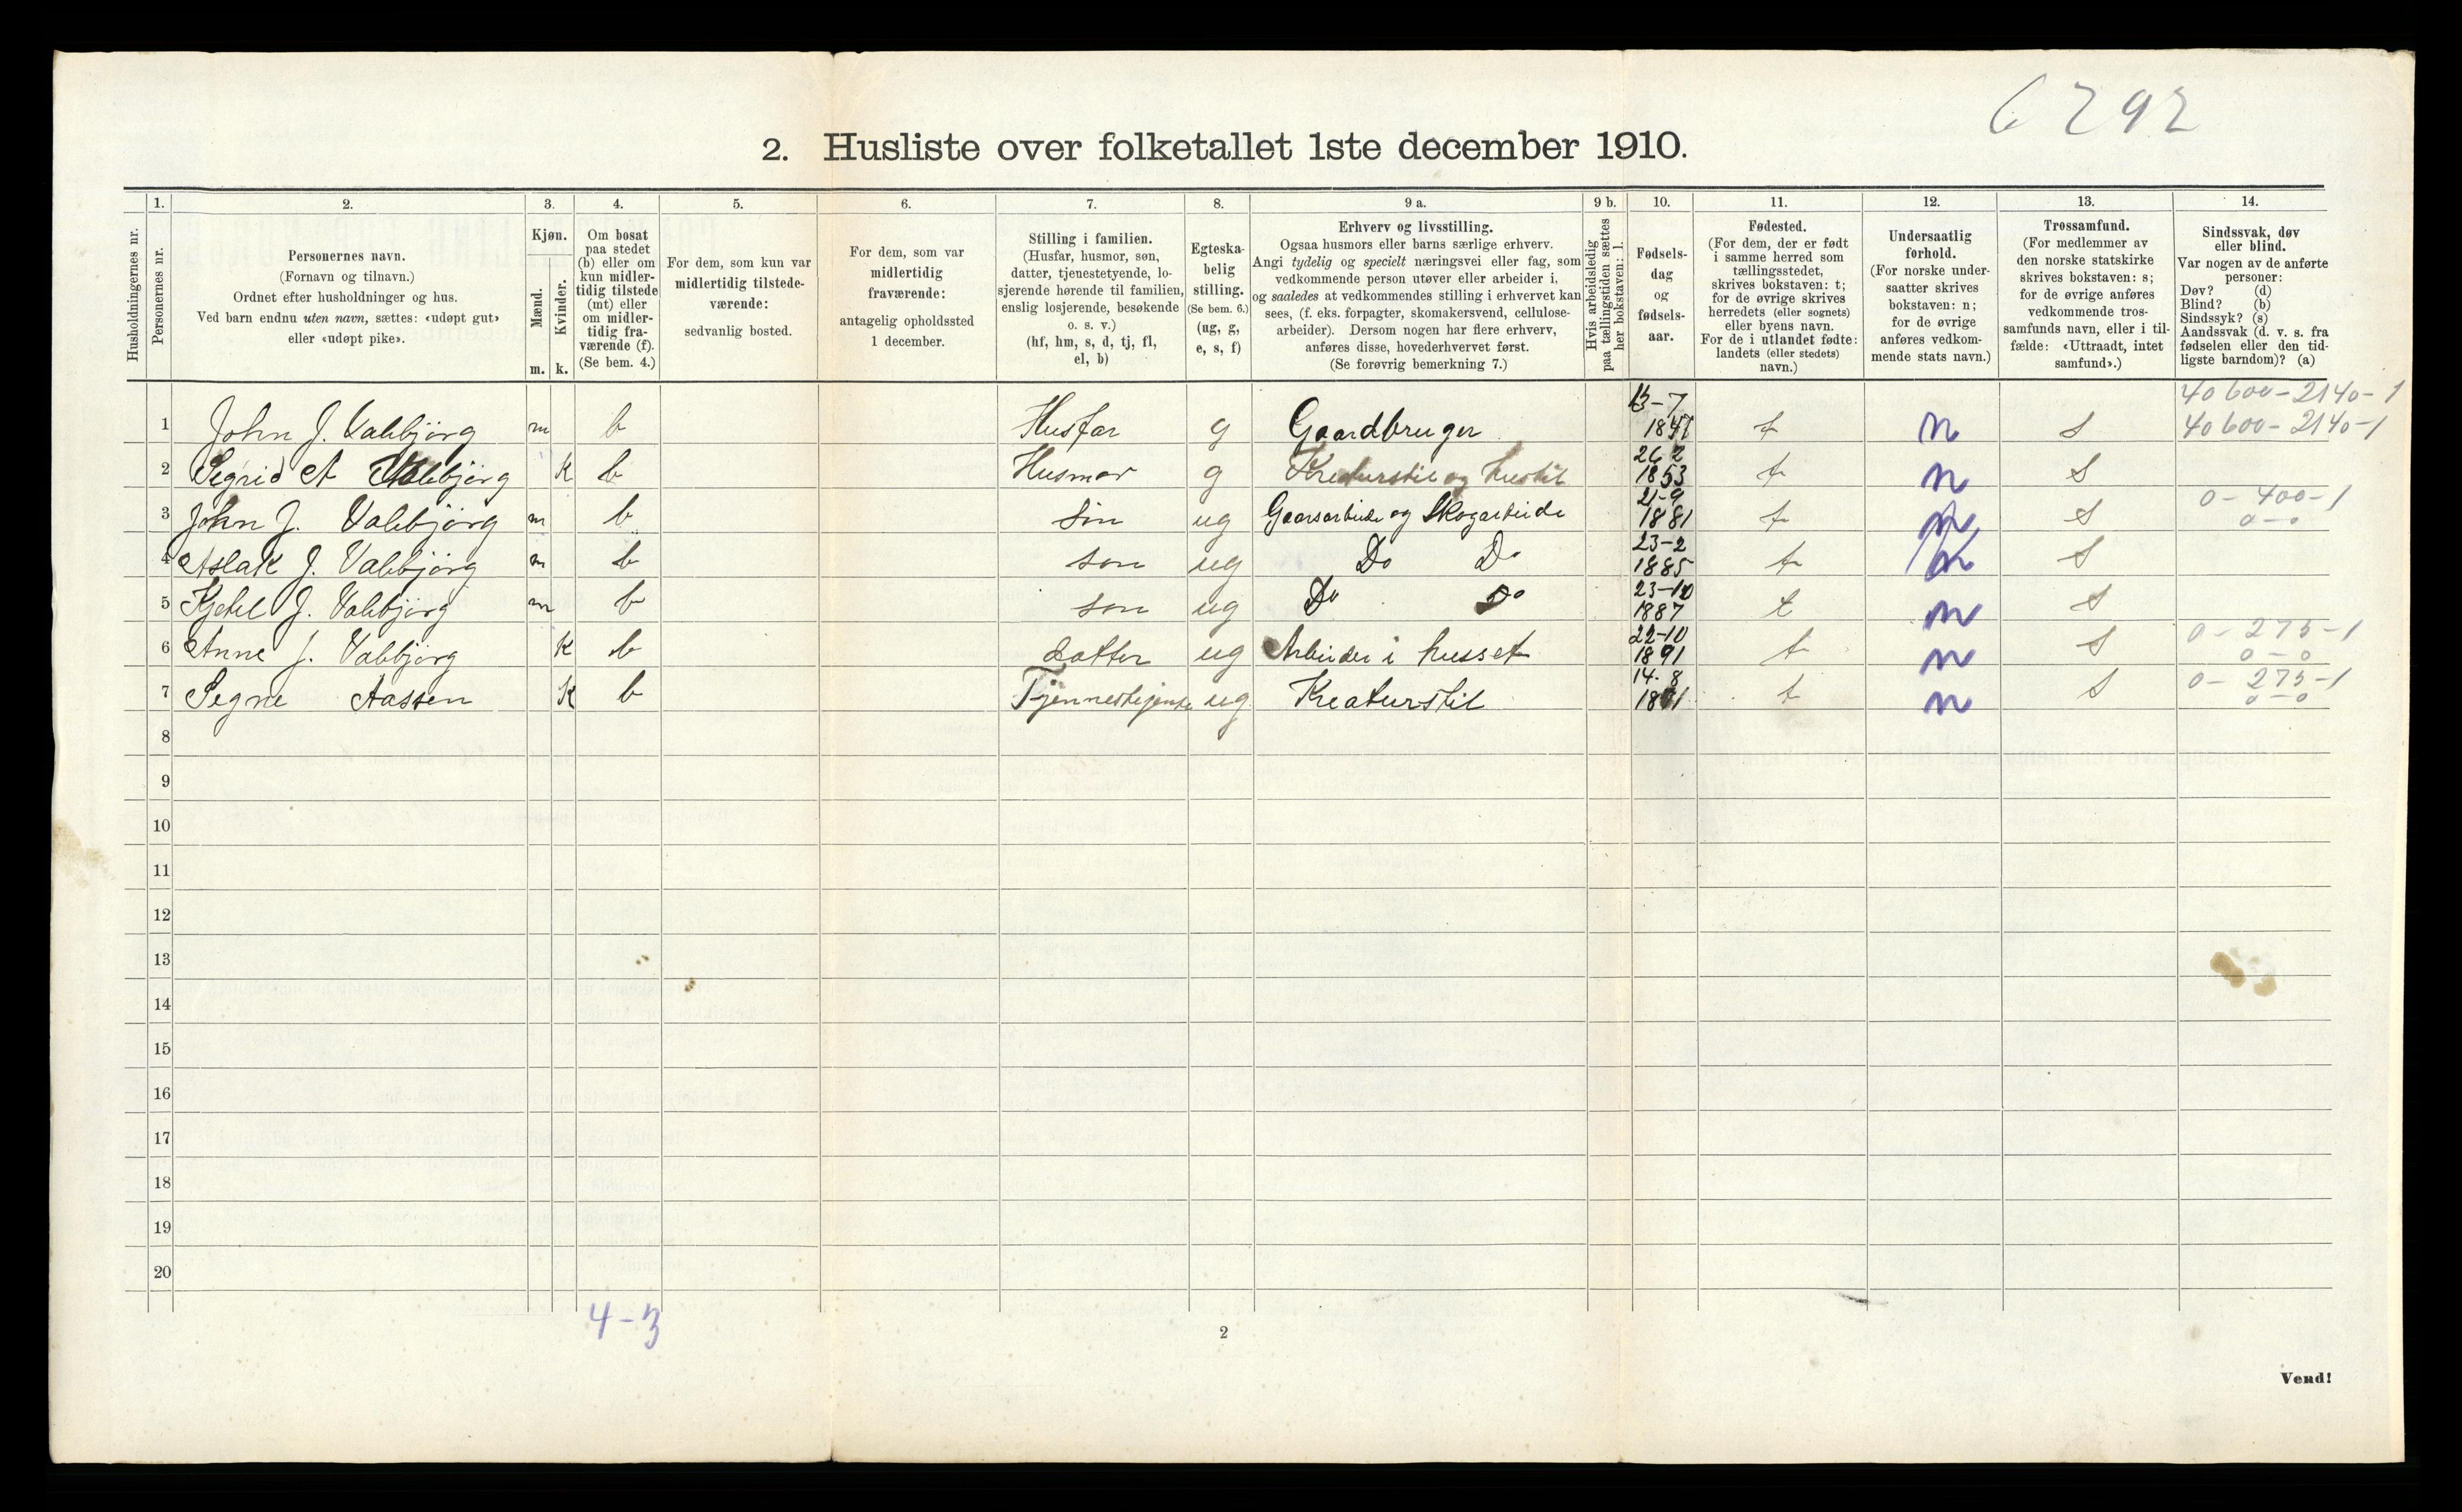 6292
2. Husliste over folketallet 1ste december 1910.
Husholdningernes nr.
1. Personernes nr.
2. Personernes navn.
(Fornavn og tilnavn.)
Ordnet efter husholdninger og hus.
Ved barn endnu uten navn, sættes: «udøpt gut»
eller «udøpt pike».
3. Kjøn.
Mænd. Kvinder.
m. k.
4. Om bosat
paa stedet
(b) eller om
kun midler-
tidig tilstede
(mt) eller
om midler-
tidig fra-
værende (f).
(Se bem. 4.)
5. For dem, som kun var
midlertidig tilstede-
værende:
sedvanlig bosted.
6. For dem, som var
midlertidig
fraværende:
antagelig opholdssted
1 december.
7. Stilling i familien.
(Husfar, husmor, søn,
datter, tjenestetyende, lo-
sjerende hørende til familien,
enslig losjerende, besøkende
o. s. v.)
(hf, hm, s, d, tj, fl,
el, b)
8. Egteska-
belig
stilling.
(Se bem. 6.)
(ug, g,
e, s, f)
9 a. Erhverv og livsstilling.
Ogsaa husmors eller barns særlige erhverv.
Angi tydelig og specielt næringsvei eller fag, som
vedkommende person utøver eller arbeider i,
og saaledes at vedkommendes stilling i erhvervet kan
sees, (f. eks. forpagter, skomakersvend, cellulose-
arbeider). Dersom nogen har flere erhverv,
anføres disse, hovederhvervet først.
(Se forøvrig bemerkning 7.)
9 b. Hvis arbeidsledig
paa tællingstiden sættes
her bokstaven: l.
10. Fødsels-
dag
og
fødsels-
aar.
11. Fødested.
(For dem, der er født
i samme herred som
tællingsstedet,
skrives bokstaven: t;
for de øvrige skrives
herredets (eller sognets)
eller byens navn.
For de i utlandet fødte:
landets (eller stedets)
navn.)
12. Undersaatlig
forhold.
(For norske under-
saatter skrives
bokstaven: n;
for de øvrige
anføres vedkom-
mende stats navn.)
13. Trossamfund.
(For medlemmer av
den norske statskirke
skrives bokstaven: s;
for de øvrige anføres
vedkommende tros-
samfunds navn, eller i til-
fælde: «Uttraadt, intet
samfund».)
14. Sindssvak, døv
eller blind.
Var nogen av de anførte
personer:
Døv? (d)
Blind? (b)
Sindssyk? (s)
Aandssvak (d. v. s. fra
fødselen eller den tid-
ligste barndom)? (a)
40600-2140-1
1 John J. Vabbjörg m b Husfar g Gaardbruger 13-7 t n s 40600-2140-1
2 Segrid A Vabbjörg K b Husmor g Kreturstil og hustil 26 2 1853 t n s
3 John J. Vabbjörg m b sön ug Gaarsarbeide og Skogarbeide 21-9 1881 t n s 0-400-1 0-0
4 Aslak J. Vabbjörg m b son ug Do Do 23-2 1885 t n s
5 Kjetel J. Vabbjörg m b son ug Do Do 23-10 1887 t n s
6 Anne J. Vabbjörg K b datter ug Arbeider i husset 22-10 1891 t n s 0-275-1 0-0
7 Segne Aassen K b Tjennestejente ug Kreaturstil 14-8 t n s 0-275-1 0-0
8
9
10
11
12
13
14
15
16
17
18
19
20
4-3
2
Vend!